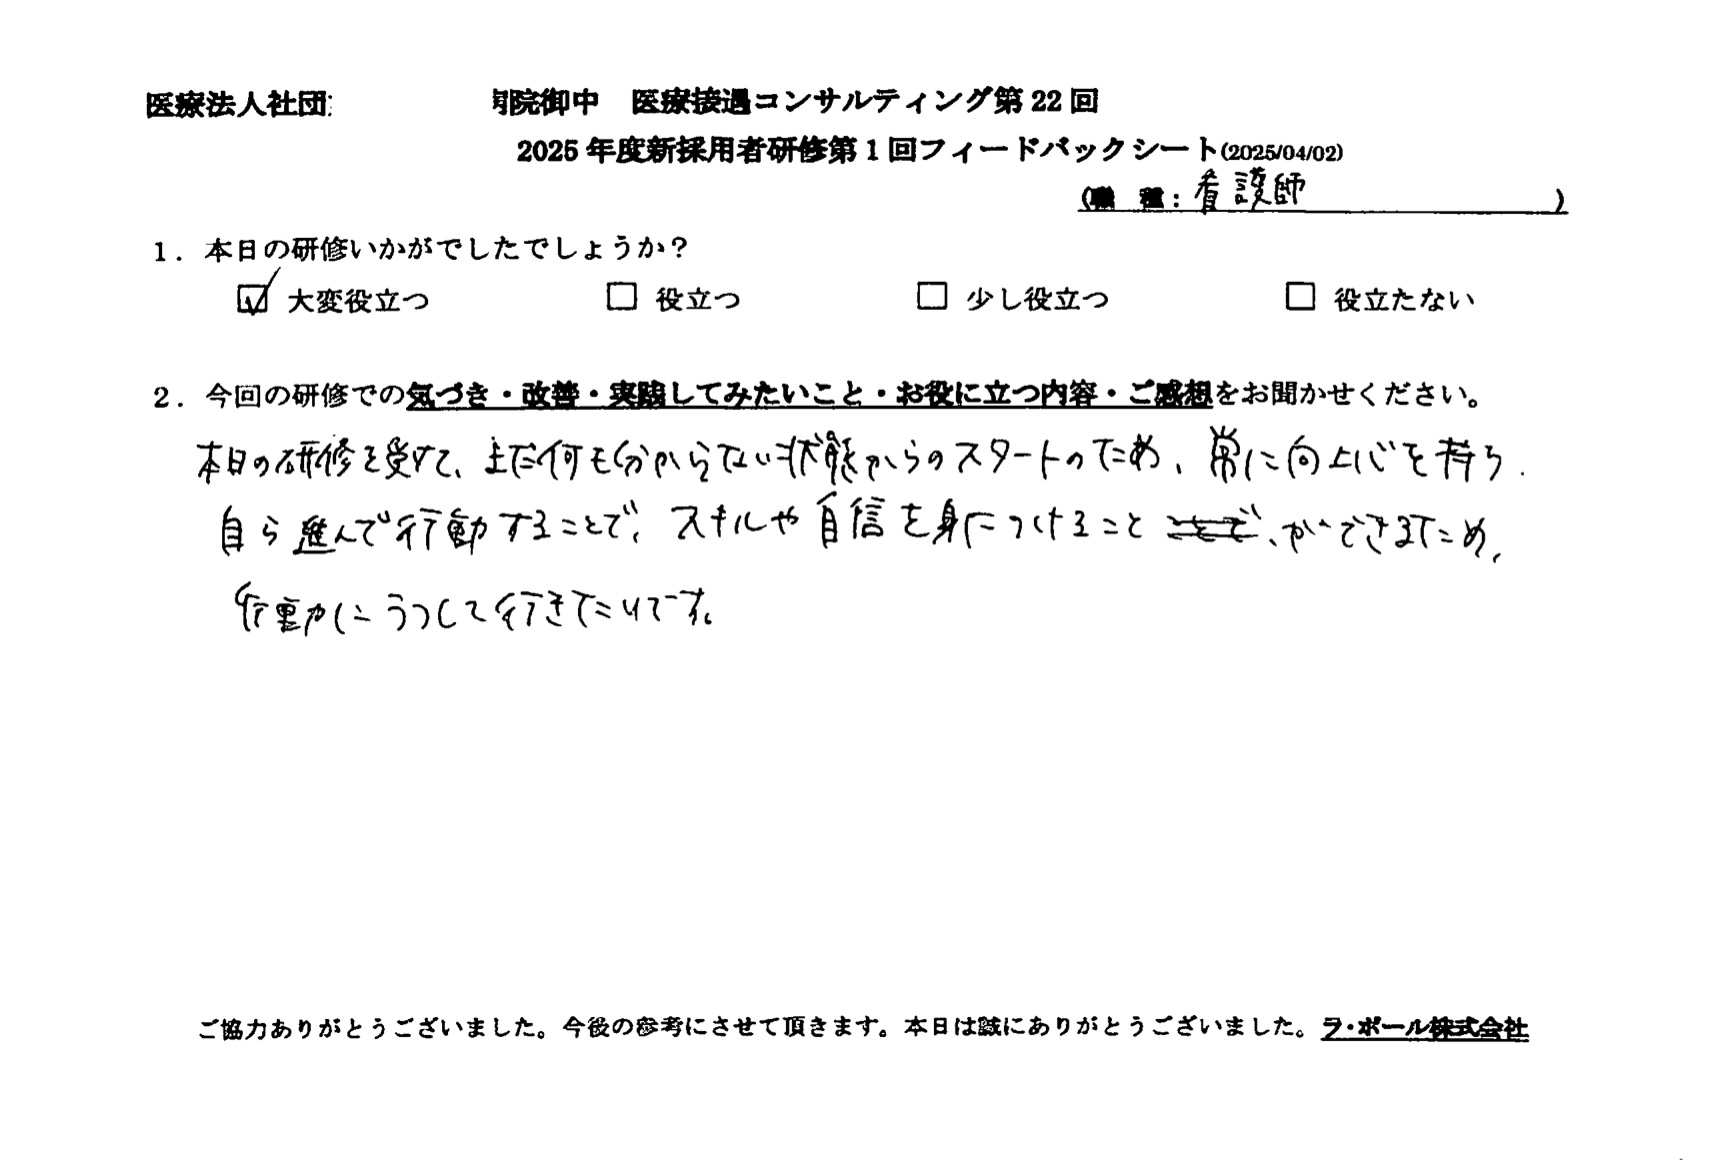 医療法人社団 院御中 医療接遇コンサルティング第22回
2025年度新採用者研修第1回フィードバックシート(2025/04/02)
(職 種：看護師 )
1．本日の研修いかがでしたでしょうか？
☑ 大変役立つ □ 役立つ □ 少し役立つ □ 役立たない
2．今回の研修での気づき・改善・実践してみたいこと・お役に立つ内容・ご感想をお聞かせください。
本日の研修を受けて、まだ何も分からない状態からのスタートのため、常に向上心を持ち、
自ら進んで行動することで、スキルや自信を身につけること ことで、ができますため、
行動にうつして行きたいです。
ご協力ありがとうございました。今後の参考にさせて頂きます。本日は誠にありがとうございました。ラ・ポール株式会社